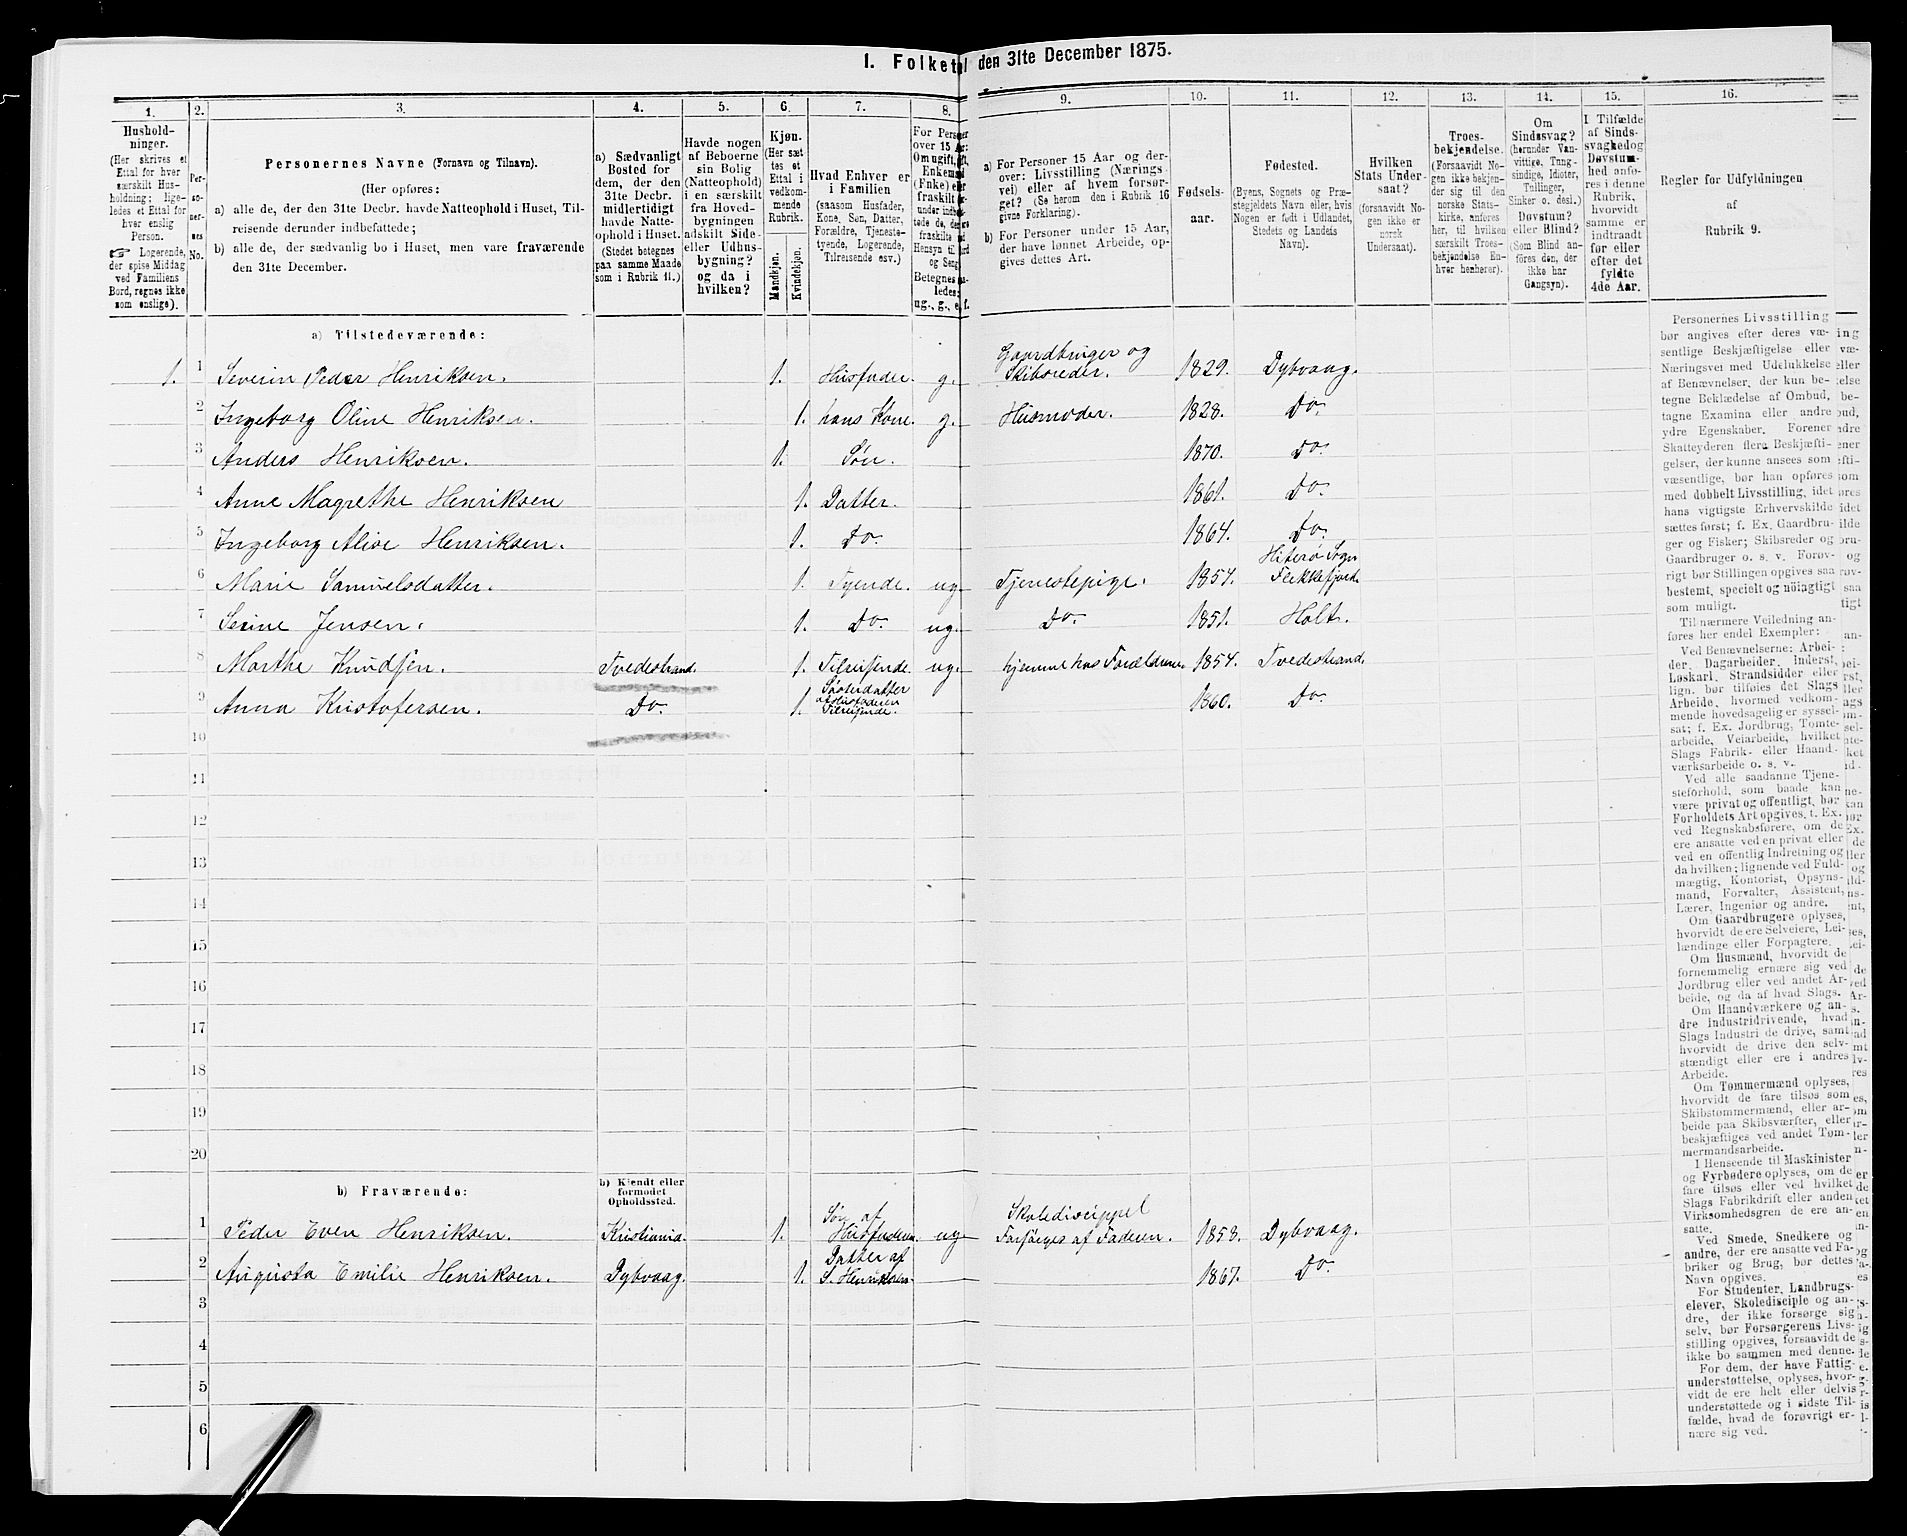 1. Folketal den 31te December 1875.
1. 2. 3. 4. 5. 6. 7. 8. 9. 10. 11. 12. 13. 14. 15. 16.
Hushold-
ninger.
(Her skrives et
Ettal for hver
særskilt Hus-
holdning; lige-
ledes et Ettal for
hver enslig
Person.
☞ Logerende,
der spise Middag
ved Familiens
Bord, regnes ikke
som enslige).
Per-
so-
ner-
nes
No.
Personernes Navne (Fornavn og Tilnavn).
(Her opføres:
a) alle de, der den 31te Decbr. havde Natteophold i Huset, Til-
reisende derunder indbefattede;
b) alle de, der sædvanlig bo i Huset, men vare fraværende
den 31te December.
a) Sædvanligt
Bosted for
dem, der den
31te Decbr.
midlertidigt
havde Natte-
ophold i Huset.
(Stedet betegnes
paa samme Maade
som i Rubrik 11.)
Havde nogen
af Beboerne
sin Bolig
(Natteophold)
i en særskilt
fra Hoved-
bygningen
adskilt Side-
eller Udhus-
bygning?
og da i
hvilken?
Kjøn.
(Her sæt-
tes et
Ettal i
vedkom-
mende
Rubrik.
Mandkjøn.
Kvindekjøn.
Hvad Enhver er
i Familien
(saasom Husfader,
Kone, Søn, Datter,
Forældre, Tjeneste-
tyende, Logerende,
Tilreisende osv.)
For Personer
over 15 Aar:
Om ugift, gift,
Enkemand
(Enke) eller
fraskilt
Betegnes saa-
ledes:
ug., g., e., f.
a) For Personer 15 Aar og der-
over: Livsstilling (Nærings-
vei) eller af hvem forsør-
get? (Se herom den i Rubrik 16
givne Forklaring).
b) For Personer under 15 Aar,
der have lønnet Arbeide, op-
gives dettes Art.
Fødsels-
aar.
Fødested.
(Byens, Sognets og Præ-
stegjeldets Navn eller, hvis
Nogen er født i Udlandet,
Stedets og Landets
Navn).
Hvilken
Stats Under-
saat?
(forsaavidt No-
gen ikke er
norsk
Undersaat).
Troes-
bekjendelse.
(Forsaavidt No-
gen ikke bekjen-
der sig til den
norske Stats-
kirke, anføres
her, til hvilken
særskilt Troes-
bekjendelse En-
hver henhører).
Om
Sindssvag?
(herunder Van-
vittige, Tung-
sindige, Idioter,
Tullinger,
Sinker o. desl.)
Døvstum?
eller Blind?
(Som Blind an-
føres den, der
ikke har
Gangsyn).
I Tilfælde
af Sinds-
svaghed og
Døvstum-
hed anfø-
res i denne
Rubrik,
hvorvidt
samme er
indtraadt
før eller
efter det
fyldte
4de Aar.
Regler for Udfyldningen
af
Rubrik 9.
a) Tilstedeværende:
1. 1 Severin Peder Henriksen. 1. Husfader. g. Gaardbruger og
Skibsreder. 1829. Dybvaag.
2 Ingeborg Oline Henriksen. 1. hans Kone. g. Husmoder. 1828. Do.
3 Anders Henriksen. 1. Søn. 1870. Do.
4 Anne Magrethe Henriksen 1. Datter. 1861. Do.
5 Ingeborg Alise Henriksen. 1. Do. 1864. Do.
6 Marie Samuelsdatter. 1. Tyende. ug. Tjenestepige. 1857. Hiterø Sogn
Flekkefjord.
7 Serine Jensen. 1. Do. ug. Do. 1851. Holt.
8 Marthe Knudsen. Tvedestrand. 1. Tilreisende. ug. hjemme hos Forældrene 1854. Tvedestrand.
9 Anna Kristofersen. Do. 1. Søsterdatter
af Husfaderen
Tilreisende. 1860. Do.
10
11
12
13
14
15
16
17
18
19
20
b) Fraværende:
b) Kjendt eller
formodet
Opholdssted.
1 Peder Even Henriksen. Kristiania. 1. Søn af
Husfaderen. ug Skoledisippel
Forsørges af Faderen. 1858. Dybvaag.
2 Augusta Emilie Henriksen. Dybvaag. 1. Datter af
S. Henriksen. 1867. Do.
3
4
5
6
Personernes Livsstilling
bør angives efter deres væ-
sentlige Beskjæftigelse eller
Næringsvei med Udelukkelse
af Benævnelser, der kun be-
tegne Beklædelse af Ombud,
tagne Examina eller andre
ydre Egenskaber. Forener
Skatteyderen flere Beskjæfti-
gelser, der kunne ansees som
væsentlige, bør han opføres
med dobbelt Livsstilling, idet
hans vigtigste Erhvervskilde
sættes først; f. Ex. Gaardbru-
ger og Fisker; Skibsreder og
Gaardbruger o. s. v. Forøv-
rigt bør Stillingen opgives saa
bestemt, specielt og nøiagtigt
som muligt.
Til nærmere Veiledning an-
føres her endel Exempler:
Ved Benævnelserne: Arbei-
der, Dagarbeider, Inderst,
Løskarl, Strandsidder eller
lign. bør tilføies det Slags
Arbeide, hvormed vedkom-
mende hovedsagelig er syssel-
sat; f. Ex. Jordbrug, Tomte-
arbeide, Veiarbeide, hvilket
Slags Fabrik- eller Haand-
værksarbeide o. s. v.
Ved alle saadanne Tjene-
steforhold, som baade kan
være privat og offentligt, bør
Forholdets Art opgives, t. Ex.
ved Regnskabsførere, om de
ere ansatte ved en privat eller
ved en offentlig Indretning og
da hvilken; lignende ved Fuld-
mægtig, Kontorist, Opsyns-
mand, Forvalter, Assistent,
Lærer, Ingeniør og andre.
Om Gaardbrugere oplyses,
hvorvidt de ere Selveiere, Lei-
lændinge eller Forpagtere.
Om Husmænd, hvorvidt de
fornemmelig ernære sig ved
Jordbrug eller ved andet Ar-
beide, og da af hvad Slags.
Om Haandværkere og an-
dre Industridrivende, hvad
Slags Industri de drive, samt
hvorvidt de drive den selv-
stændigt eller ere i andres
Arbeide.
Om Tømmermænd oplyses,
hvorvidt de fare tilsøs som
Skibstømmermænd, eller ar-
beide paa Skibsværfter, eller
beskjæftiges ved andet Tøm-
mermandsarbeide.
I Henseende til Maskinister
og Fyrbødere oplyses, om de
fare tilsøs eller ved hvilket
Slags Fabrikdrift eller anden
Virksomhed de ere an-
satte.
Ved Smede, Snedkere og
andre, der ere ansatte ved Fa-
briker og Brug, bør dettes
Navn opgives.
For Studenter, Landbrugs-
elever, Skoledisciple og an-
dre, der ikke forsørge sig
selv, bør Forsørgerens Livs-
stilling opgives, forsaavidt de
ikke bo sammen med denne.
For dem, der have Fattig-
understøttelse, oplyses, hvor-
vidt de ere helt eller delvis
understøttede og i sidste Til-
fælde, hvad de forøvrigt er-
nære sig ved.